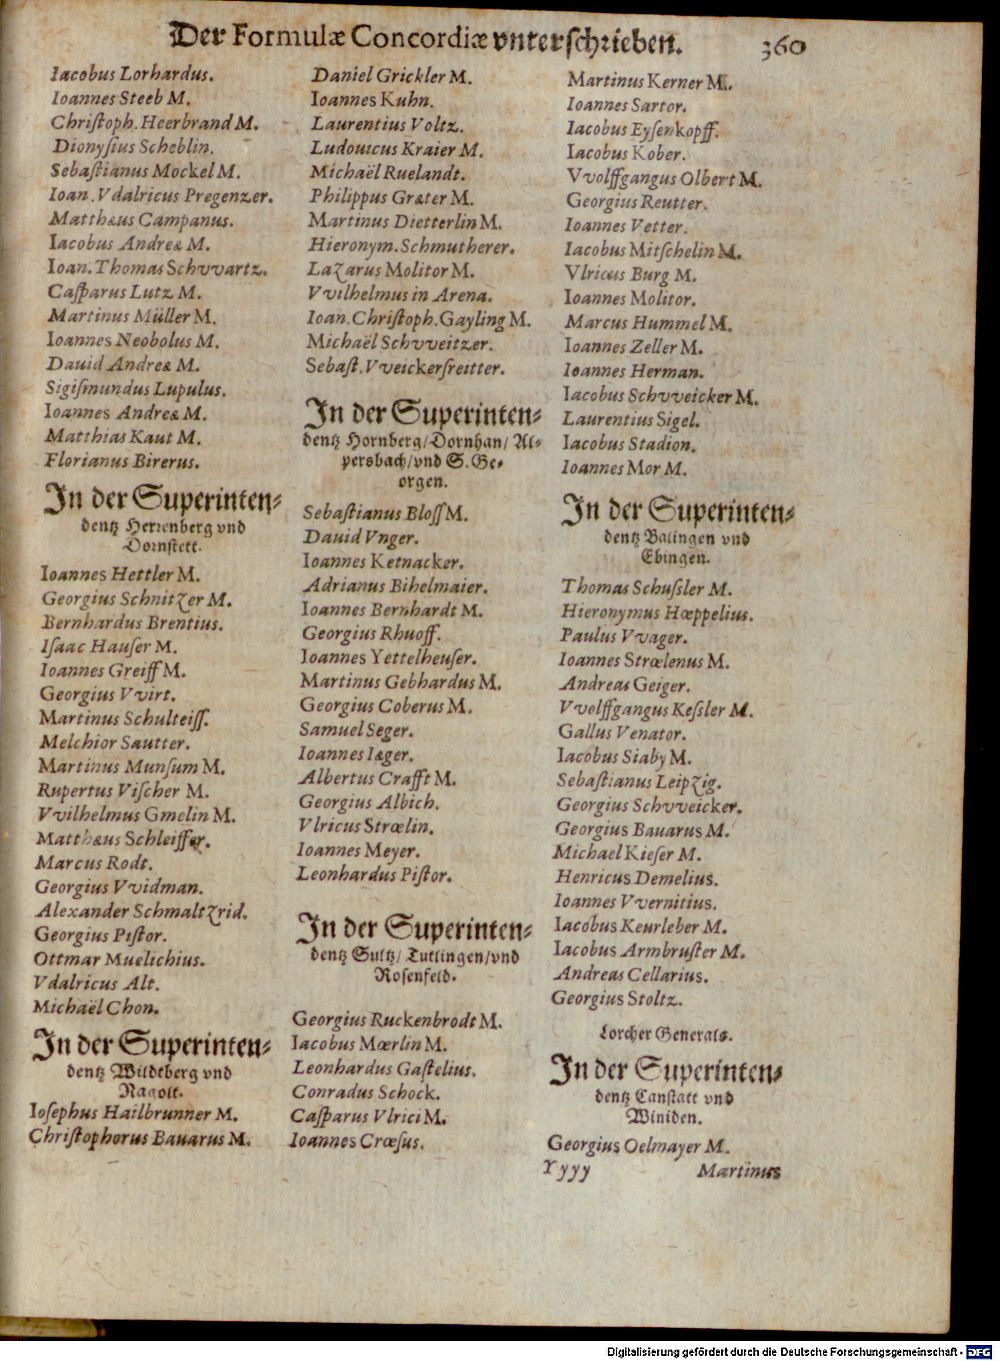 Der Formulæ Concordiæ vnterschrieben. 360
Iacobus Lorhardus.
Ioannes Steeb M.
Chriſtoph. Heerbrand M.
Dionyſius Scheblin.
Sebaſtianus Mockel M.
Ioan. Vdalricus Pregenzer.
Matthæus Campanus.
Iacobus Andreæ M.
Ioan. Thomas Schvvartz.
Caſparus Lutz M.
Martinus Müller M.
Ioannes Neobolus M.
Dauid Andreæ M.
Sigiſmundus Lupulus.
Ioannes Andreæ M.
Matthias Kaut M.
Florianus Birerus.
In der Superinten⸗
dentz Herrenberg vnd
Dornſtett.
Ioannes Hettler M.
Georgius Schnitzer M.
Bernhardus Brentius.
Iſaac Hauſer M.
Ioannes Greiff M.
Georgius Vvirt.
Martinus Schulteiſſ.
Melchior Sautter.
Martinus Munſum M.
Rupertus Viſcher M.
Vvilhelmus Gmelin M.
Matthæus Schleiffer.
Marcus Rodt.
Georgius Vvidman.
Alexander Schmaltzrid.
Georgius Piſtor.
Ottmar Muelichius.
Vdalricus Alt.
Michaël Chon.
In der Superinten⸗
dentz Wildtberg vnd
Nagolt.
Ioſephus Hailbrunner M.
Chriſtophorus Bauarus M.
Daniel Grickler M.
Ioannes Kuhn.
Laurentius Voltz.
Ludouicus Kraier M.
Michaël Ruelandt.
Philippus Grater M.
Martinus Dietterlin M.
Hieronym. Schmutherer.
Lazarus Molitor M.
Vvilhelmus in Arena.
Ioan. Chriſtoph. Gayling M.
Michaël Schvveitzer.
Sebaſt. Vveickerſreitter.
In der Superinten⸗
dentz Hornberg/ Dornhan/ Al⸗
persbach/ vnd S. Ge⸗
orgen.
Sebaſtianus Bloſſ M.
Dauid Vnger.
Ioannes Ketnacker.
Adrianus Bihelmaier.
Ioannes Bernhardt M.
Georgius Rhuoff.
Ioannes Yettelheuſer.
Martinus Gebhardus M.
Georgius Coberus M.
Samuel Seger.
Ioannes Iæger.
Albertus Crafft M.
Georgius Albich.
Vlricus Strœlin.
Ioannes Meyer.
Leonhardus Piſtor.
In der Superinten⸗
dentz Sultz/ Tutlingen/ vnd
Roſenfeld.
Georgius Ruckenbrodt M.
Iacobus Mœrlin M.
Leonhardus Gaſtelius.
Conradus Schock.
Caſparus Vlrici M.
Ioannes Crœſus.
Martinus Kerner M.
Ioannes Sartor.
Iacobus Eyſenkopff.
Iacobus Kober.
Vvolffgangus Olbert M.
Georgius Reutter.
Ioannes Vetter.
Iacobus Mitſchelin M.
Vlricus Burg M.
Ioannes Molitor.
Marcus Hummel M.
Ioannes Zeller M.
Ioannes Herman.
Iacobus Schvveicker M.
Laurentius Sigel.
Iacobus Stadion.
Ioannes Mor M.
In der Superinten⸗
dentz Balingen vnd
Ebingen.
Thomas Schuſsler M.
Hieronymus Hœppelius.
Paulus Vvager.
Ioannes Strœlenus M.
Andreas Geiger.
Vvolffgangus Keſsler M.
Gallus Venator.
Iacobus Siaby M.
Sebaſtianus Leipzig.
Georgius Schvveicker.
Georgius Bauarus M.
Michael Kieſer M.
Henricus Demelius.
Ioannes Vvernitius.
Iacobus Keurleber M.
Iacobus Armbruſter M.
Andreas Cellarius.
Georgius Stoltz.
Lorcher Generals.
In der Superinten⸗
dentz Canſtatt vnd
Winiden.
Georgius Oelmayer M.
Yyyy Martinus
Digitalisierung gefördert durch die Deutsche Forschungsgemeinschaft - DFG